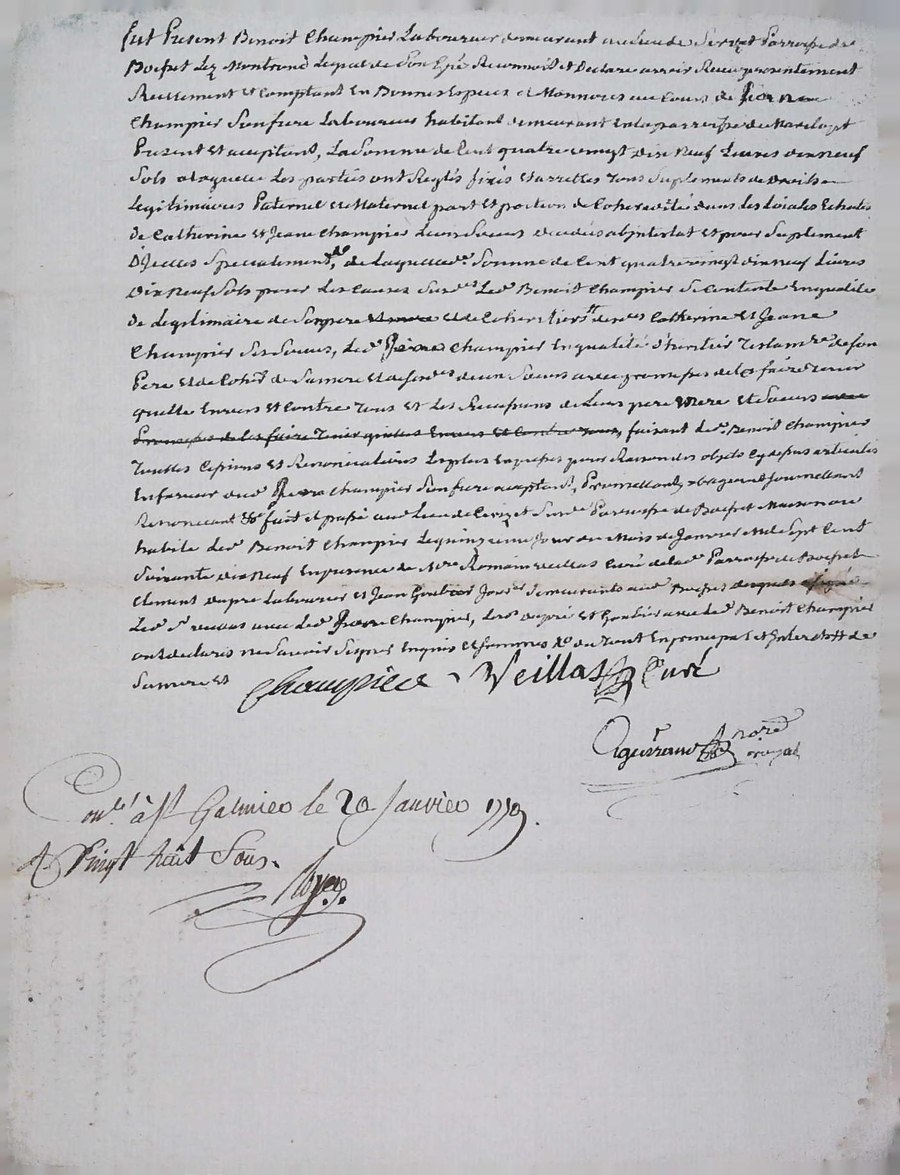 fut Present Benoit Champier Laboureur demeurant au Lieu de Parroisse de
Boisset Lez Montrond Lequel de Son gré Reconnoit et Declare avoir Receu presentement
Reellement et Comptant En Bonnes Especes et Monnoies au Cours de pierre
Champier Son frere Laboureur habitant demeurant en la parroisse de Marclopt
Present et aceptant, La Somme de Cent quatre vingt Dix Neuf Livres dix neuf
Sols a laquelle Les parties ont Reglés fixés et arrettés Tous Suplements de Droits
Legitimaires Paternel et Maternel part et portion de Coheredité dans Les
de Catherine et Jeane Champier Leurs Soeurs decedés abintestat et pour Suplement
D'Jcelles Specialement, de Laquelle de Somme de Cent quatre vingt dix neuf Livres
Dix Neuf Sols pour Les Causes Sus Led Benoit Champier Se Contente En qualité
de Legitimaire de Son pere et de Coher de Catherine et Jeane
Champier Ses Soeurs, Led Pierre Champier En qualité d'heritier Testamre de Son
Pere et de Coher de Sa mere et de Ses deux Soeurs avec promesses de Le faire Tenir
quitte Envers et Contre Tous et Les Recepions de Leurs pere mere et Soeurs avec
Promesses de Les faire Tenir quittes Envers et Contre Tous, faisant Led Benoit Champier
Touttes Cessions et Renonciations Les plus Expresses pour Raison des objets Cy dessus articulés
En faveur dud Pierre Champier Son frere aceptant, Promettant, obligeant Soumettant
Renoncant &c fait et passé au Lieu de Surd Parroisse de Boisset Maison ou
habite Led Benoit Champier Le quinzieme Jour du Mois de Janvier Mil Sept Cent
Soixante dix Neuf En presence de Mre Romain veillas Curé de lad Parroisse de Boisset
Clement dupré Laboureur et Jean Goubier demeurants aud Boisset
Led Sr veillas avec Led Pierre Champier, Led dupré et Goubier avec Led Benoit Champier
ont declarés ne Savoir Signer Enquis et Sommés du Tout En principal et de
Sa mere et
Champier Veillas Curé
nore
royal
Conlé à St Galmier le 20 Janvier 1779.
Vingt huit Sous.